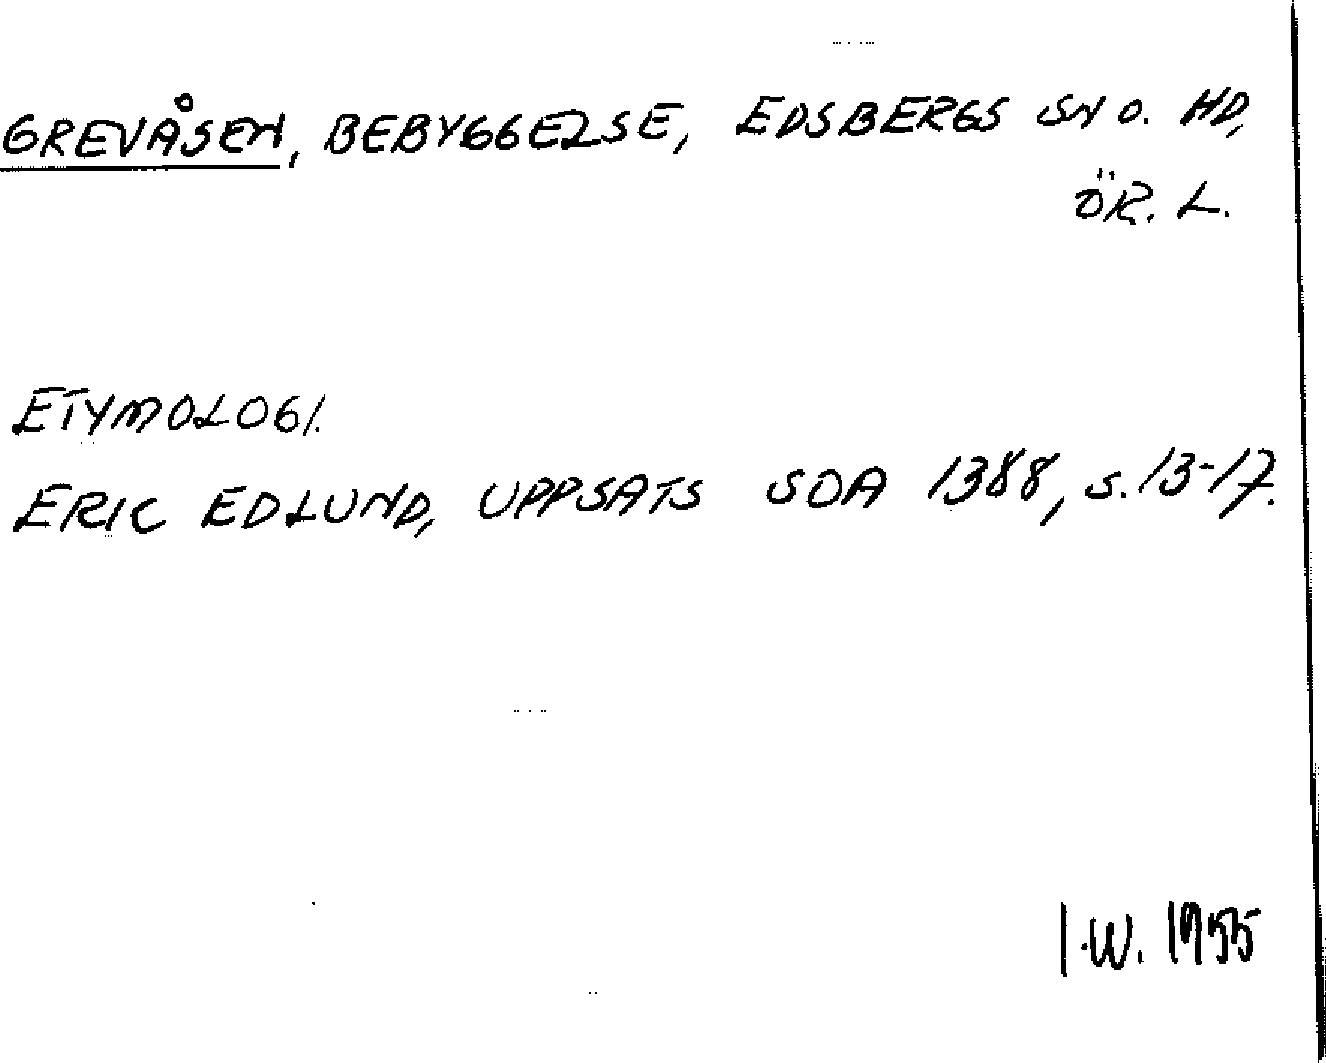 GREVÅSEN, BEBYGGELSE, EDSBERGS SN O. HD,
ÖR. L.
ETYMOLOGI.
ERIC EDLUND, UPPSATS SOA 1388, s. 13-17.
I.W. 1955